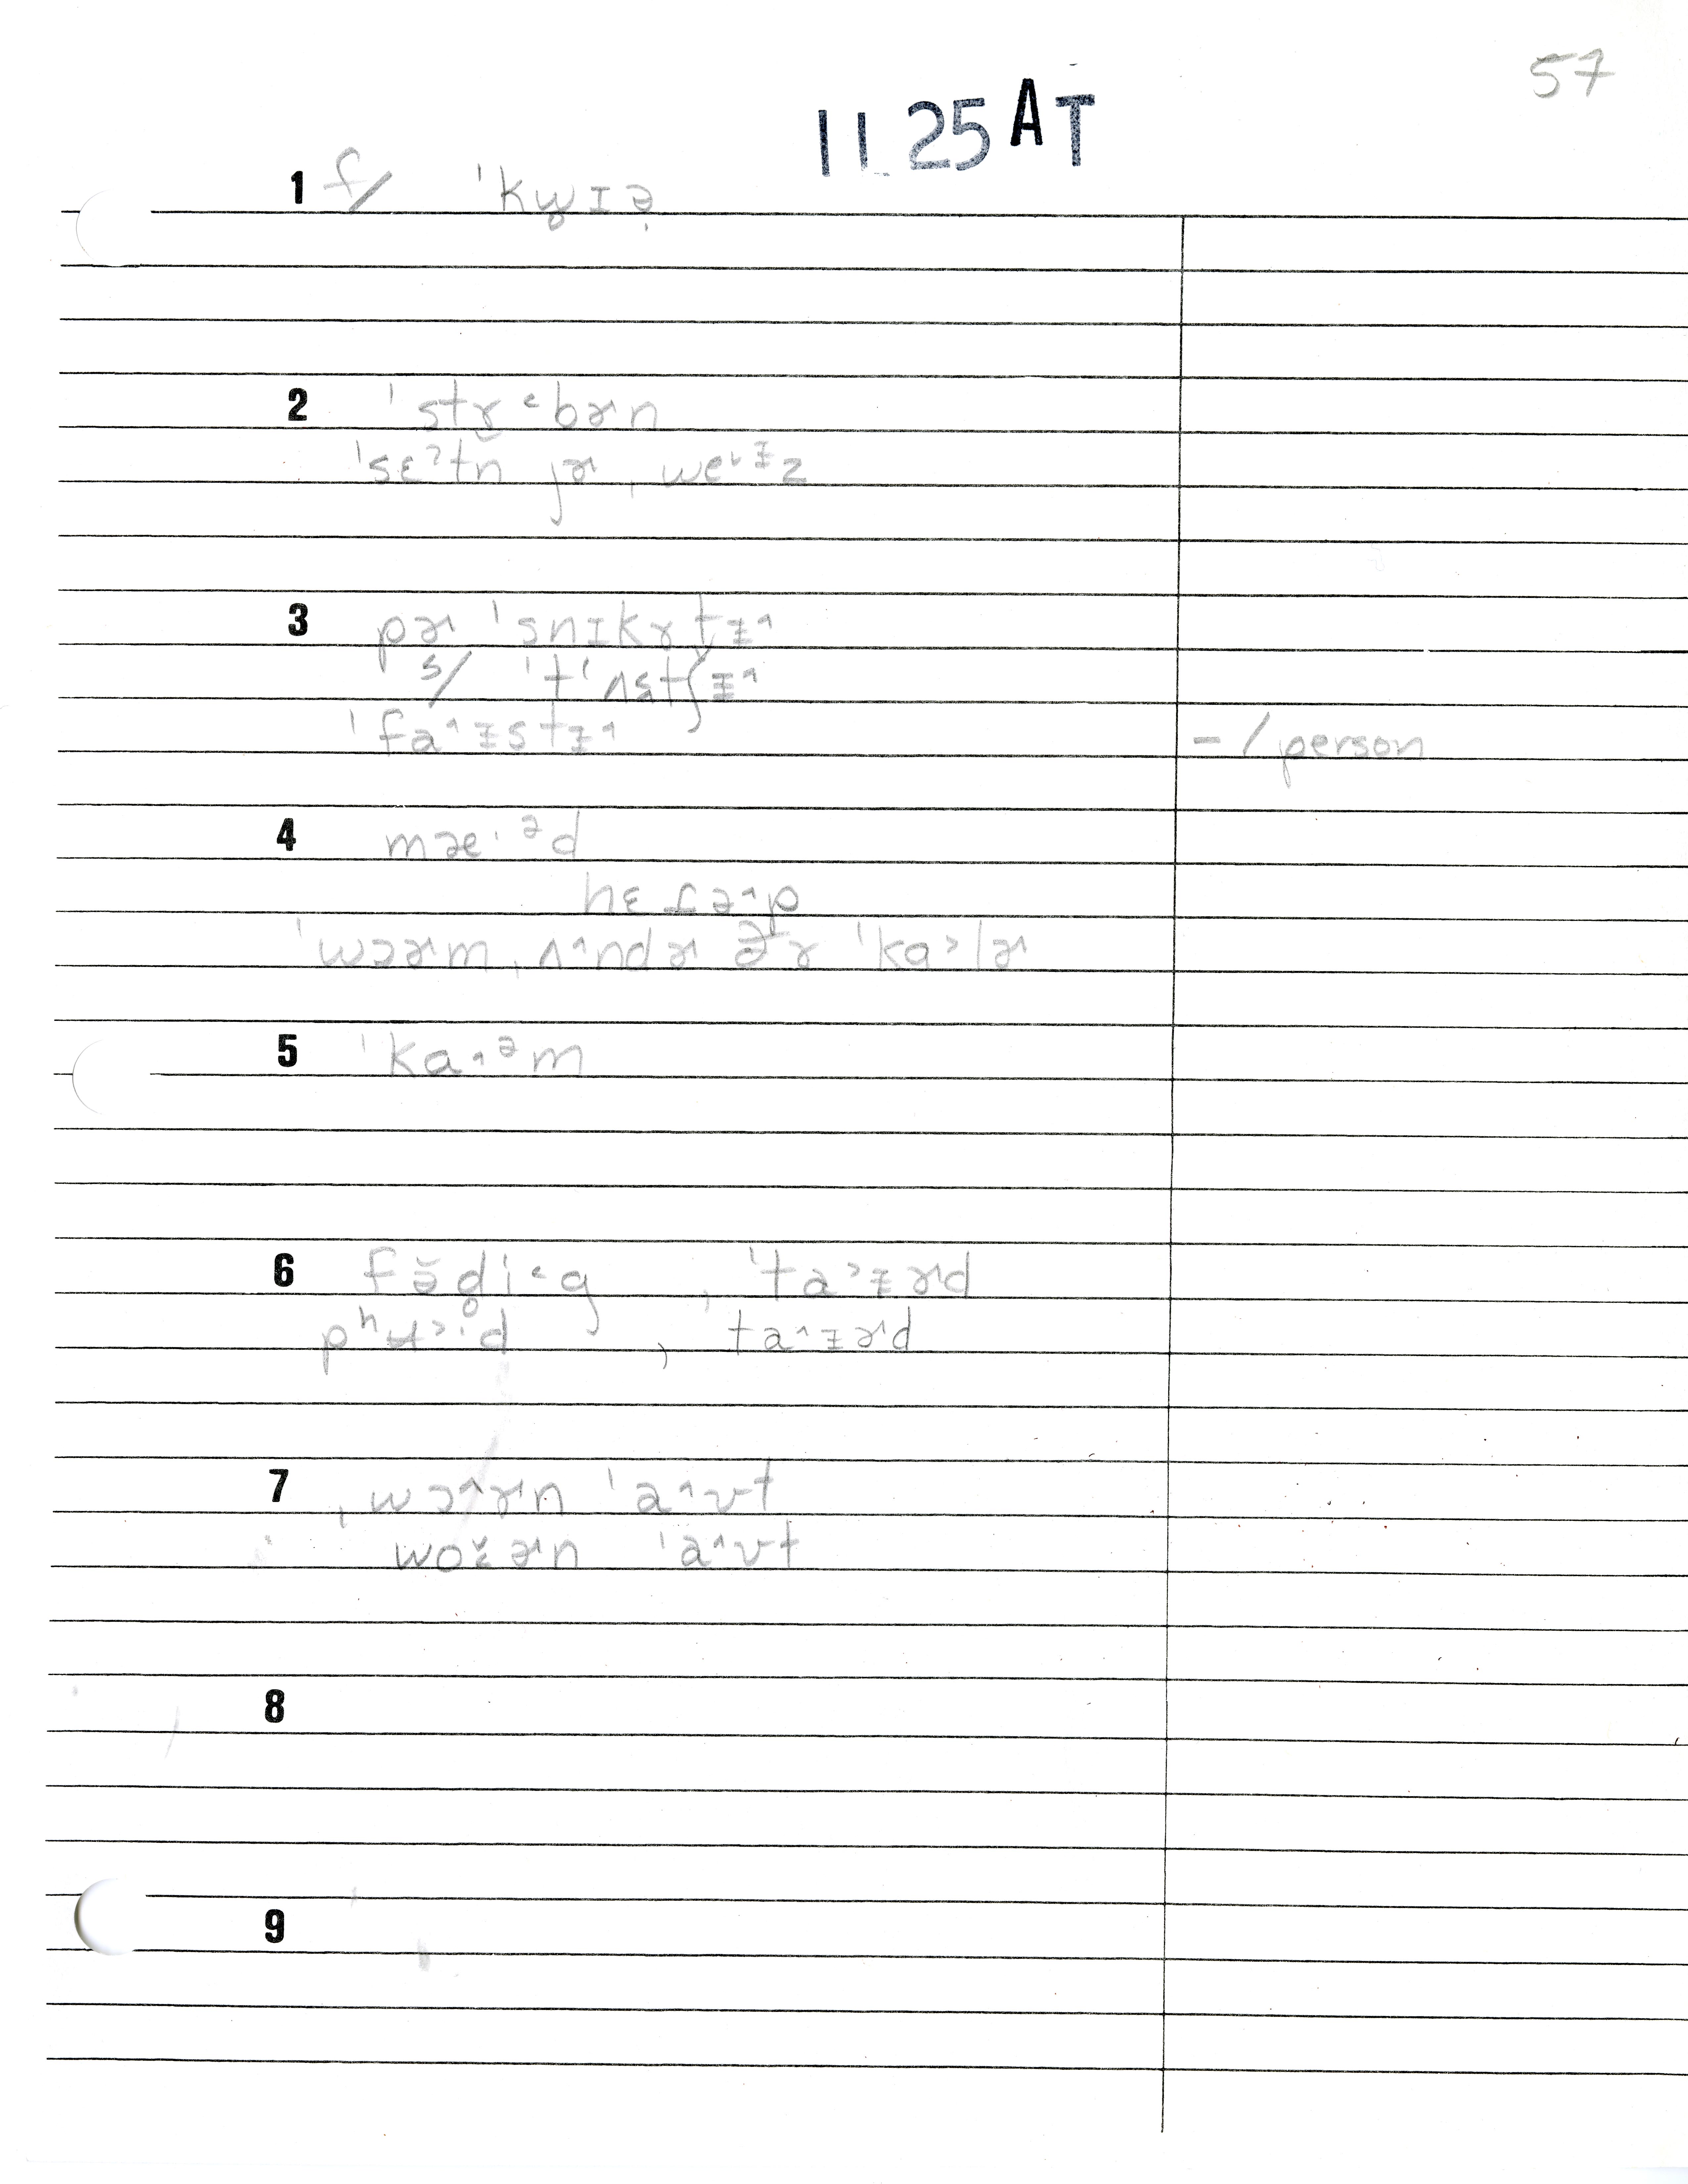 57
11 25 AT
1 f/ ˈkw̥ɪə̣
2 ˈstɤ̬˂bɚn
ˈsɛˀtn jɚ ˌwe˞ᵻz
3 pɚˈsnɪkɤtᵻ˄
s/ ˈtʻʌstʃᵻ˄
ˈfa˄ᵻstᵻ˄
- / person
4 mæ·ᵊd
hɛ fləˑp
ˈwɔɚm ˌʌ˄ndɚ ðɤ ˈka˃lɚ
5 ˈka˄ᵊm
6 fə̆d̥i˂g ˌˈta˃ᵻɚd
pʰʉ˃ːd , ta˄ᵻɚd
7 ˌwɔ˄ɚn ˈa˄ʊt
woɛ̆ɚn ˈa˄ʊt
8
9